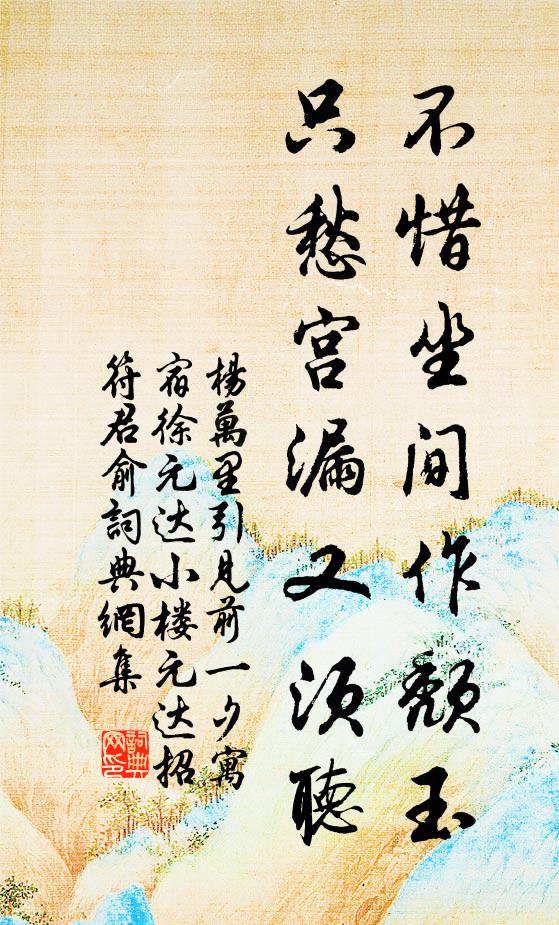 不惜坐间作颓玉
只愁宫漏又须聴
楊萬里引見前一夕寓
宿徐元达小楼元达招
符君俞詞典網集
詞典网印